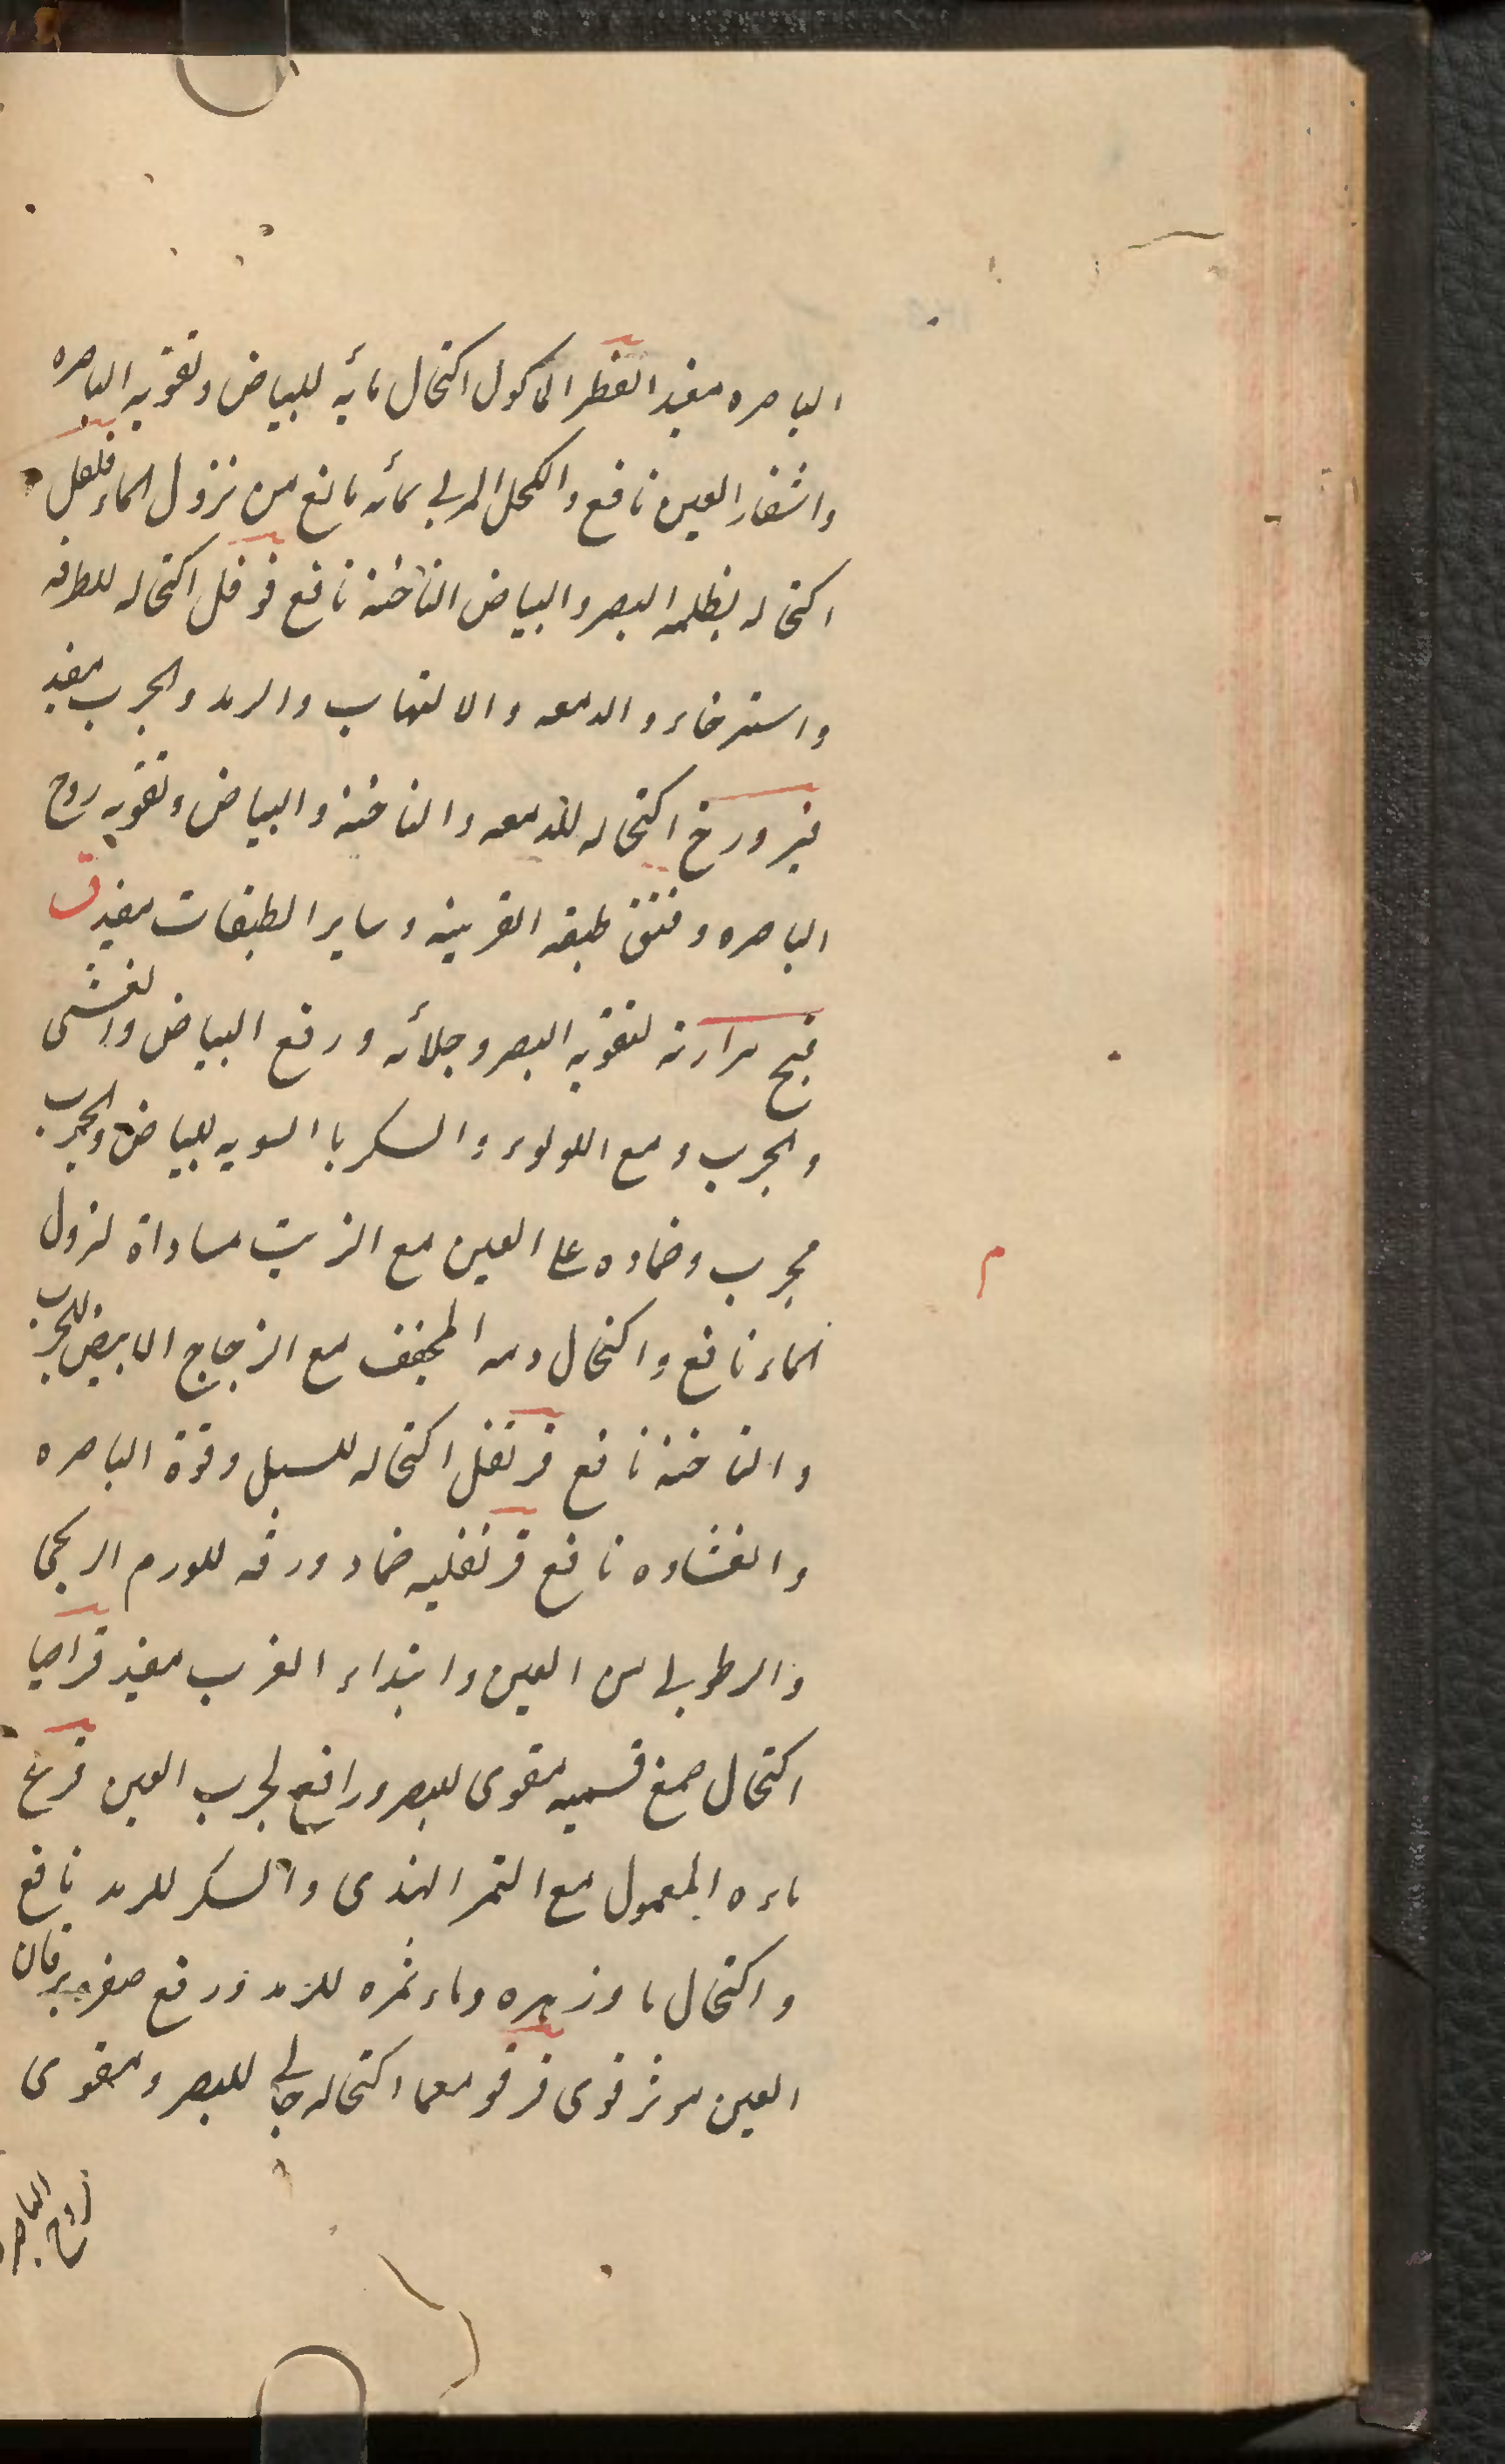 الباصره مفيد الفطر الماكول اكتحال مائه للبياض وتقويه الباصره
واشفار العين نافع والكحل المربي بمائه مانع من نزول الماء فلفل
اكتحاله لظلمه البصر والبياض الناخنة نافع فوفل اكتحاله للطرفه
واسترخاء والدمعه والالتهاب والرمد والجرب مفيد
فيروزج اكتحاله للدمعه والناخنة والبياض وتقويه روح
الباصره وفتق طبقه القرنيه وساير الطبقات مفيد ق
قبج مرارته لتقويه البصر وجلائه ورفع البياض والغشى
والجرب ومع اللولوء والسكر بالسويه للبياض والجرب
مجرب وضماده على العين مع الزيت مساواة لنزول
الماء نافع واكتحال دمه المجفف مع الزجاج الابيض للجرب
والناخنة نافع قرنفل اكتحاله للسبل وقوة الباصره
والغشاوه نافع قرنفليه ضماد ورقه للورم الريحى
والرطوبى من العين وابتداء الغرب مفيد قراصيا
اكتحال صمغ قسميه مقوى للبصر ورافع لجرب العين قرع
ماءه المعمول مع التمر الهندى والسكر للرمد نافع
واكتحال ماء زهره وماء ثمره للرمد ورفع صفره يرقان
العين موثر قوى قرقومعما اكتحاله جالى للبصر ومقوى
روح الباصره
م